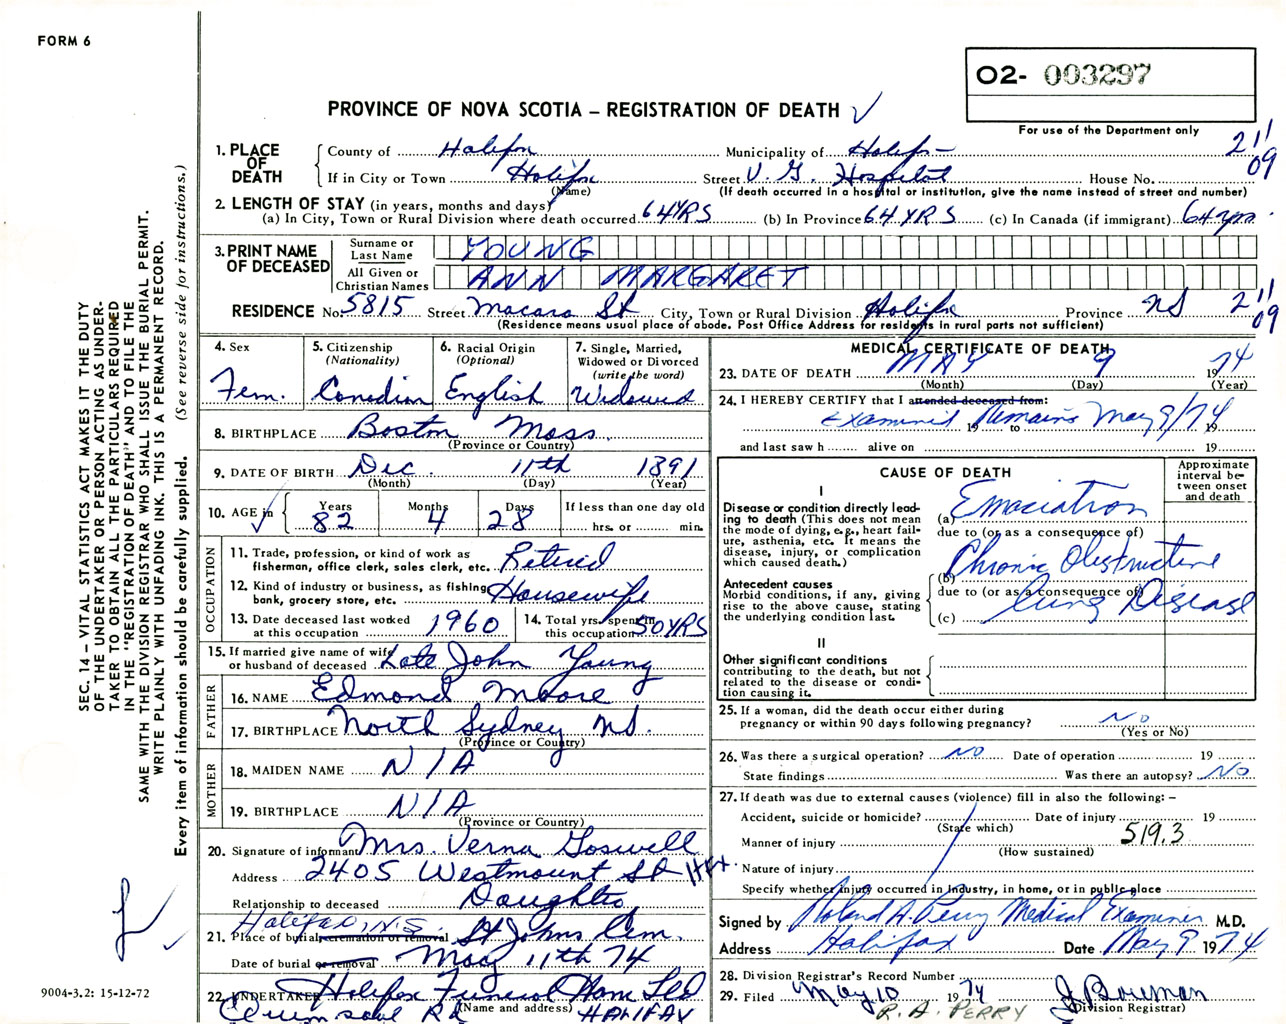 FORM 6
O2- 003297
PROVINCE OF NOVA SCOTIA – REGISTRATION OF DEATH
For use of the Department only
211
09
1. PLACE OF DEATH
County of Halifax Municipality of Halifax
If in City or Town Halifax Street V. G. Hospital House No.
(Name) (If death occurred in a hospital or institution, give the name instead of street and number)
2. LENGTH OF STAY (in years, months and days)
(a) In City, Town or Rural Division where death occurred 64 YRS (b) In Province 64 YRS (c) In Canada (if immigrant) 64 yrs.
3. PRINT NAME OF DECEASED
Surname or Last Name YOUNG
All Given or Christian Names ANN MARGARET
RESIDENCE No. 5815 Street Macara St City, Town or Rural Division Halifax Province NS 211
09
(Residence means usual place of abode. Post Office Address for residents in rural parts not sufficient)
4. Sex Fem.
5. Citizenship (Nationality) Canadian
6. Racial Origin (Optional) English
7. Single, Married, Widowed or Divorced (write the word) Widowed
8. BIRTHPLACE Boston Mass.
(Province or Country)
9. DATE OF BIRTH Dec. 11th 1891
(Month) (Day) (Year)
10. AGE in Years 82 Months 4 Days 28 If less than one day old
hrs. or min.
OCCUPATION
11. Trade, profession, or kind of work as fisherman, office clerk, sales clerk, etc. Retired
12. Kind of industry or business, as fishing, bank, grocery store, etc. Housewife
13. Date deceased last worked at this occupation 1960
14. Total yrs. spent in this occupation 50 YRS
15. If married give name of wife or husband of deceased Late John Young
FATHER
16. NAME Edmond Moore
17. BIRTHPLACE North Sydney NS.
(Province or Country)
MOTHER
18. MAIDEN NAME N/A
19. BIRTHPLACE N/A
(Province or Country)
20. Signature of informant Mrs. Verna Goswell
Address 2405 Westmount St Hfx.
Relationship to deceased Daughter
Halifax, N.S.
21. Place of burial, cremation or removal St Johns Cem.
Date of burial or removal May 11th 74
22. UNDERTAKER Halifax Funeral Home Ltd
(Name and address) HALIFAX
MEDICAL CERTIFICATE OF DEATH
23. DATE OF DEATH MAY 9 1974
(Month) (Day) (Year)
24. I HEREBY CERTIFY that I attended deceased from:
Examined Remains May 9/74
19 to 19
and last saw h alive on 19
CAUSE OF DEATH
Approximate interval between onset and death
I
Disease or condition directly leading to death (This does not mean the mode of dying, e.g., heart failure, asthenia, etc. It means the disease, injury, or complication which caused death.)
(a) Emaciation
due to (or as a consequence of)
Antecedent causes
Morbid conditions, if any, giving rise to the above cause, stating the underlying condition last.
(b) Chronic Obstructive
due to (or as a consequence of)
(c) Lung Disease
II
Other significant conditions contributing to the death, but not related to the disease or condition causing it.
25. If a woman, did the death occur either during pregnancy or within 90 days following pregnancy? No
(Yes or No)
26. Was there a surgical operation? No Date of operation 19
State findings Was there an autopsy? No
27. If death was due to external causes (violence) fill in also the following: –
Accident, suicide or homicide? Date of injury 19
(State which)
Manner of injury 519.3
(How sustained)
Nature of injury
Specify whether injury occurred in Industry, in home, or in public place
Signed by Roland A. Perry Medical Examiner M.D.
Address Halifax Date May 9 1974
28. Division Registrar's Record Number
29. Filed May 10 1974 J Bowman
R. A. PERRY (Division Registrar)
SEC. 14 – VITAL STATISTICS ACT MAKES IT THE DUTY
OF THE UNDERTAKER OR PERSON ACTING AS UNDER-
TAKER TO OBTAIN ALL THE PARTICULARS REQUIRED
IN THE "REGISTRATION OF DEATH" AND TO FILE THE
SAME WITH THE DIVISION REGISTRAR WHO SHALL ISSUE THE BURIAL PERMIT.
WRITE PLAINLY WITH UNFADING INK. THIS IS A PERMANENT RECORD.
Every item of information should be carefully supplied. (See reverse side for instructions.)
9004-3.2: 15-12-72